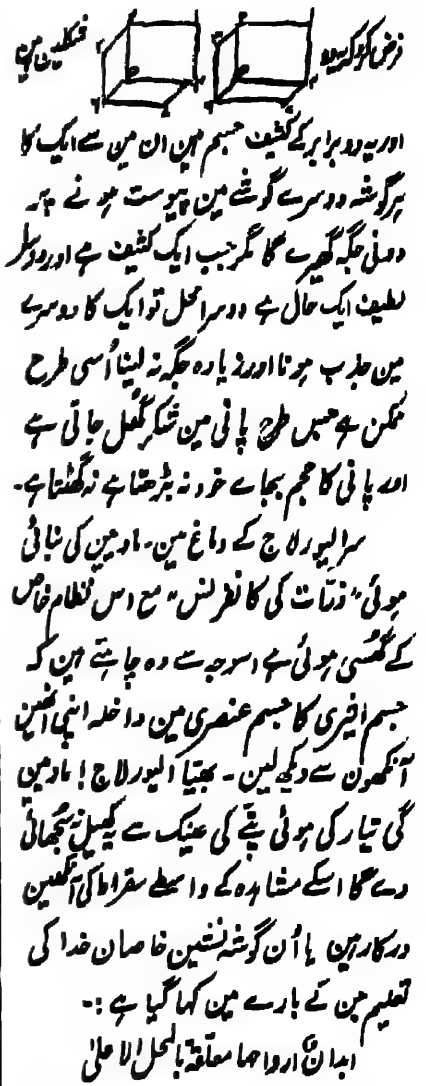 فرض کرو کہ یہ دو شکلیں ہیں
اور یہ دو برابر کے کثیف جسم ہین ان مین سے ایک کا
ہر گوشہ دوسرے گوشے مین پیوست ہونے پر
دونی جگہ گھیرے گا مگر جب ایک کثیف ہے اور دوسرا
لطیف ایک حال ہے دوسرا محل تو ایک کا دوسرے
مین جذب ہونا اور زیادہ جگہ نہ لینا اُسی طرح
ممکن ہے جس طرح پانی مین شکر گھل جاتی ہے
اور پانی کا حجم بجاے خود نہ بڑھتا ہے نہ گھٹتا ہے۔
سرالیور لاج کے دماغ مین۔ مادمین کی بنائی
ہوئی "ذرّات کی کانفرنس" مع اس نظام خاص
کے گھسی ہوئی ہے اسوجہ سے وہ چاہتے ہین کہ
جسم اثیری کا جسم عنصری مین داخلہ اپنی انھین
آنکھون سے دیکھ لین۔ بھیّا الیور لاج! مادمین
کی تیار کی ہوئی پتّے کی عینک سے یہ کھیل نہ سُجھائی
دے گا اسکے مشاہدہ کے واسطے سقراط کی آنکھین
درکار ہین یا اُن گوشہ نشین خاصان خدا کی
تعلیم جن کے بارے مین کہا گیا ہے :۔
ابدانٌ ارواحہا معلّقۃ بالمحل الاعلیٰ